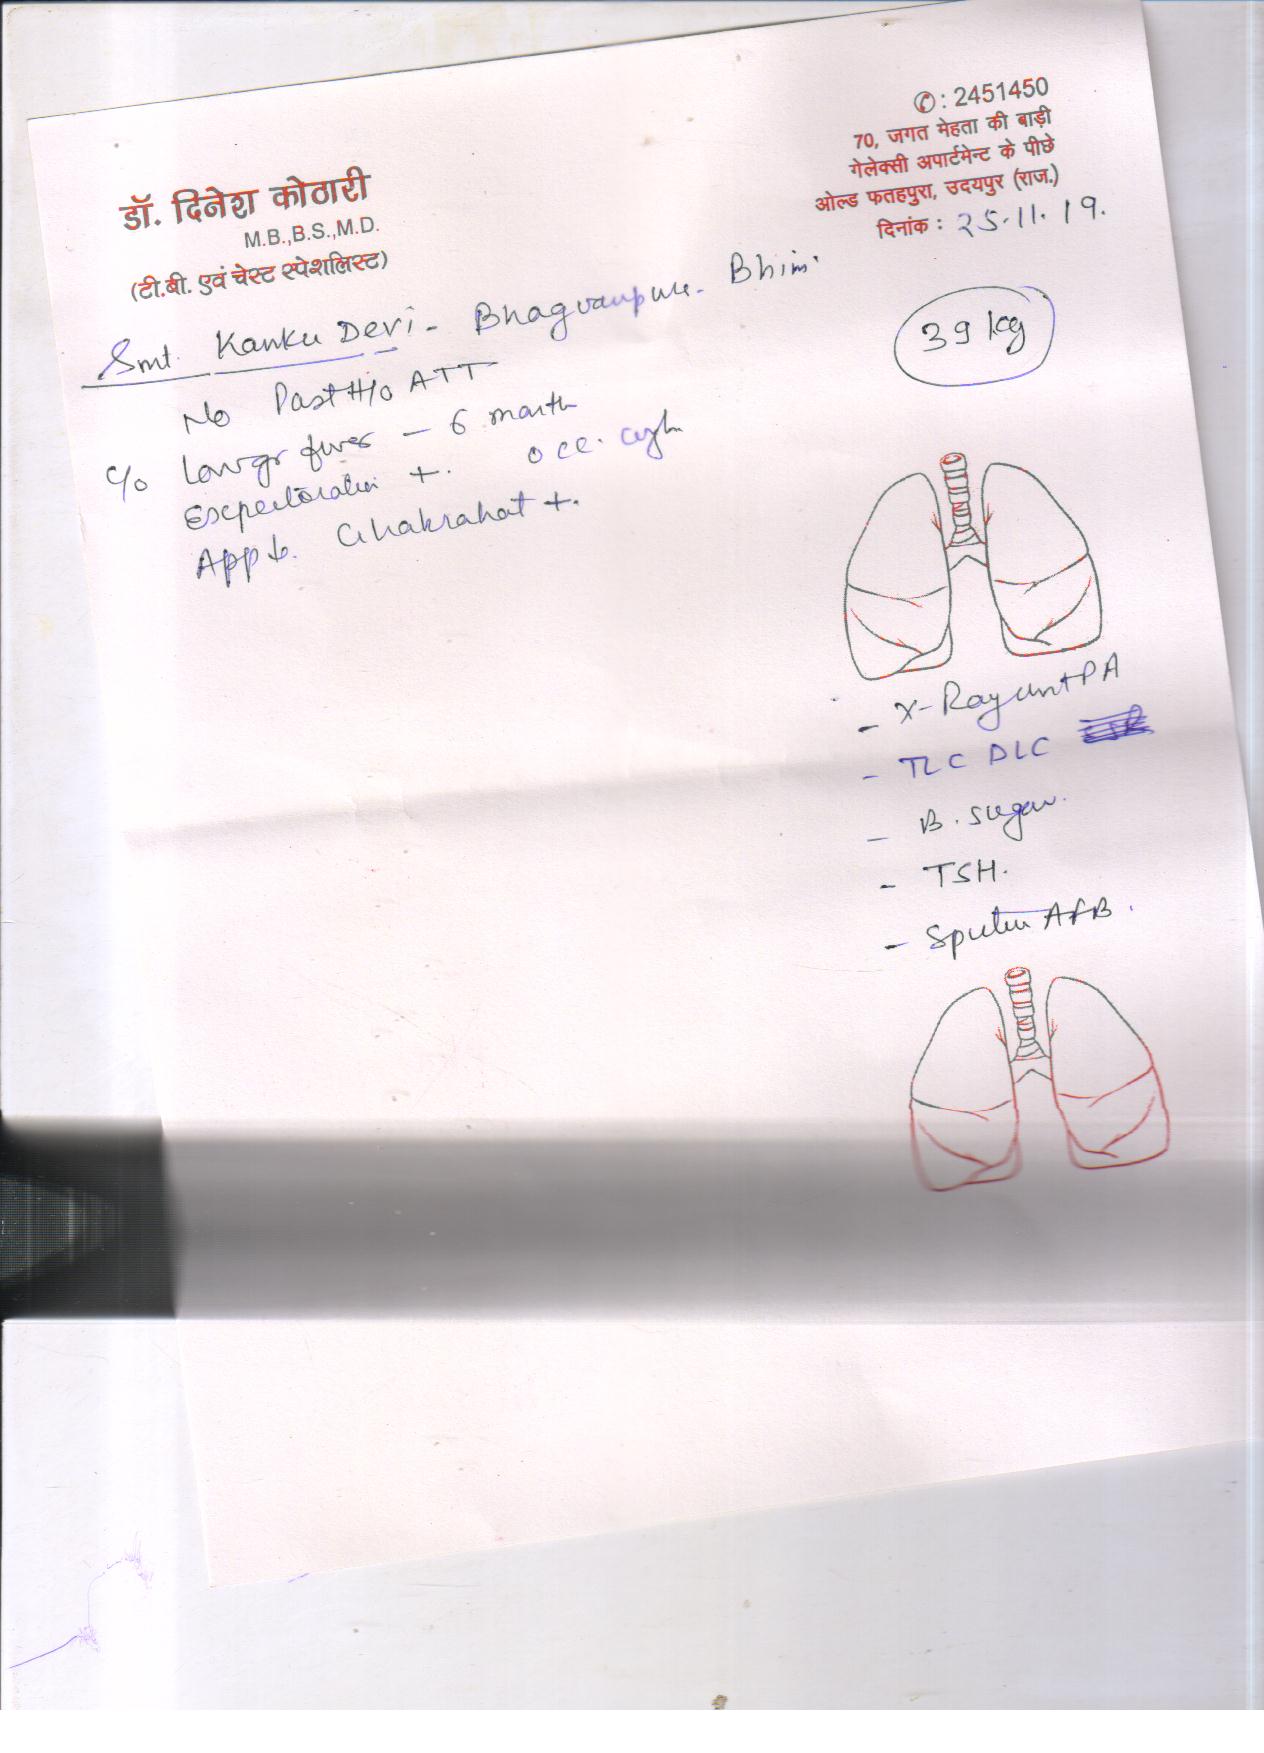 ✆: 2451450
70, जगत मेहता की बाड़ी
गेलेक्सी अपार्टमेन्ट के पीछे
ओल्ड फतहपुरा, उदयपुर (राज.)
दिनांक : 25.11.19.
डॉ. दिनेश कोठारी
M.B.,B.S.,M.D.
(टी.बी. एवं चेस्ट स्पेशलिस्ट)
Smt. Kanku Devi - Bhagvanpura - Bhim.
39 kg
No Past H/o ATT
C/o Lowgr fever - 6 month
Expectoration +. occ. cough
App ↓. Ghabrahat +.
- X-Ray chest PA
- TLC DLC
- B. Sugar.
- TSH.
- Sputum AFB.